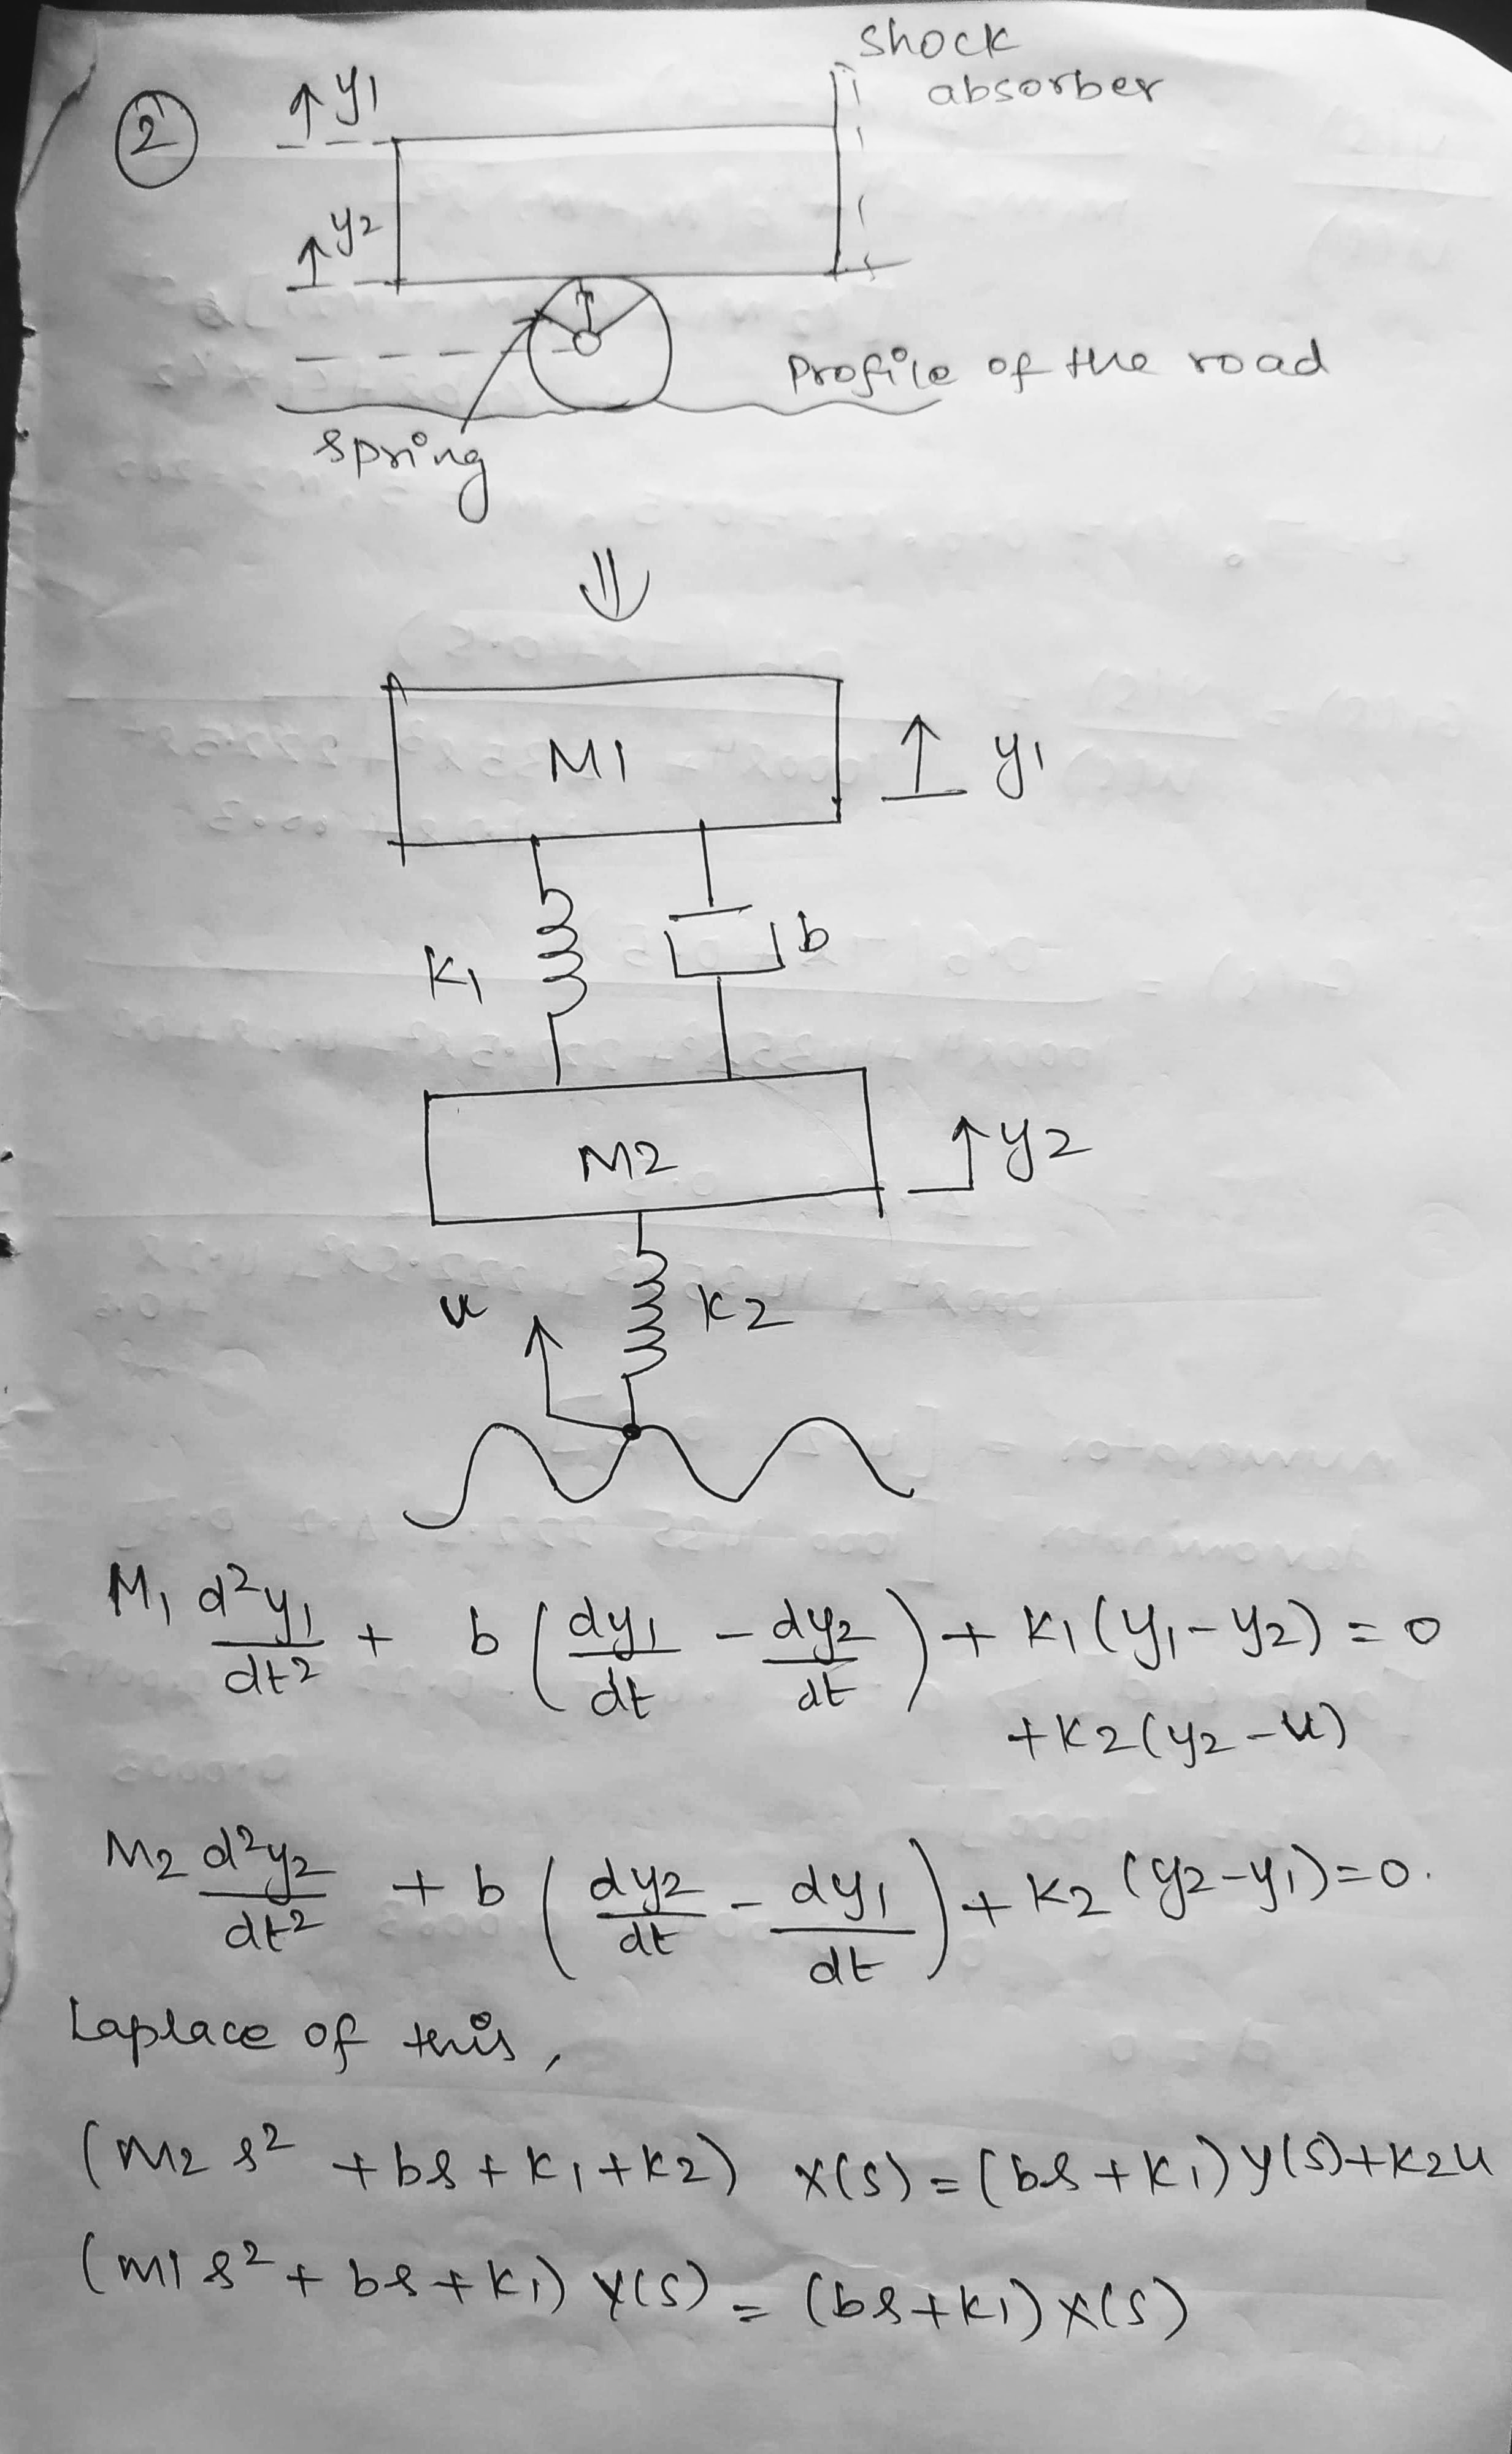 shock
absorber
②
↑ y1
↑ y2
Profile of the road
spring
⇓
M1
↑ y1
K1
b
M2
↑ y2
u
K2
M1 d²y1/dt² + b (dy1/dt - dy2/dt) + K1(y1-y2) = 0
+K2(y2-u)
M2 d²y2/dt² + b (dy2/dt - dy1/dt) + K2 (y2-y1)=0.
Laplace of this,
(M2 s² + bs + K1 + K2) X(s) = (bs + K1) Y(s)+K2U
(M1 s² + bs + K1) Y(s) = (bs+K1) X(s)